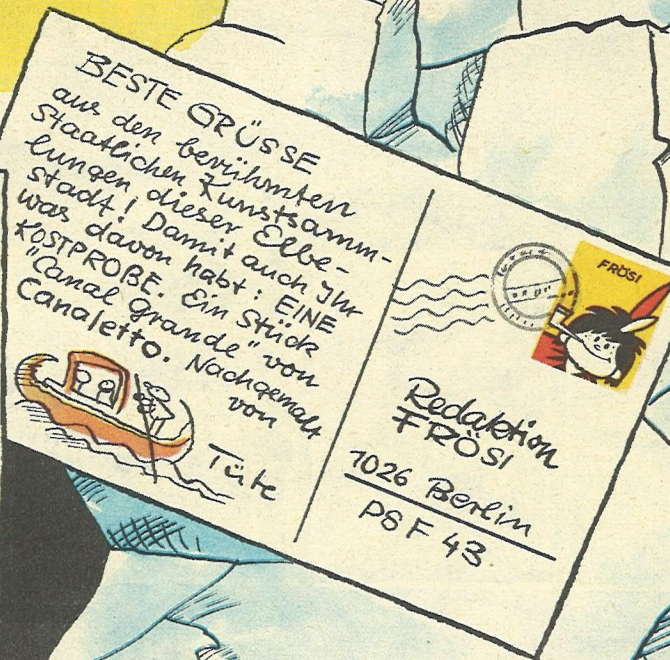 BESTE GRÜSSE
aus den berühmten
Staatlichen Kunstsamm-
lungen dieser Elbe-
stadt! Damit auch Ihr
was davon habt: EINE
KOSTPROBE. Ein Stück
"Canal Grande" von
Canaletto. Nachgemalt
von
Tüte
FRÖSI
Redaktion
FRÖSI
1026 Berlin
PSF 43